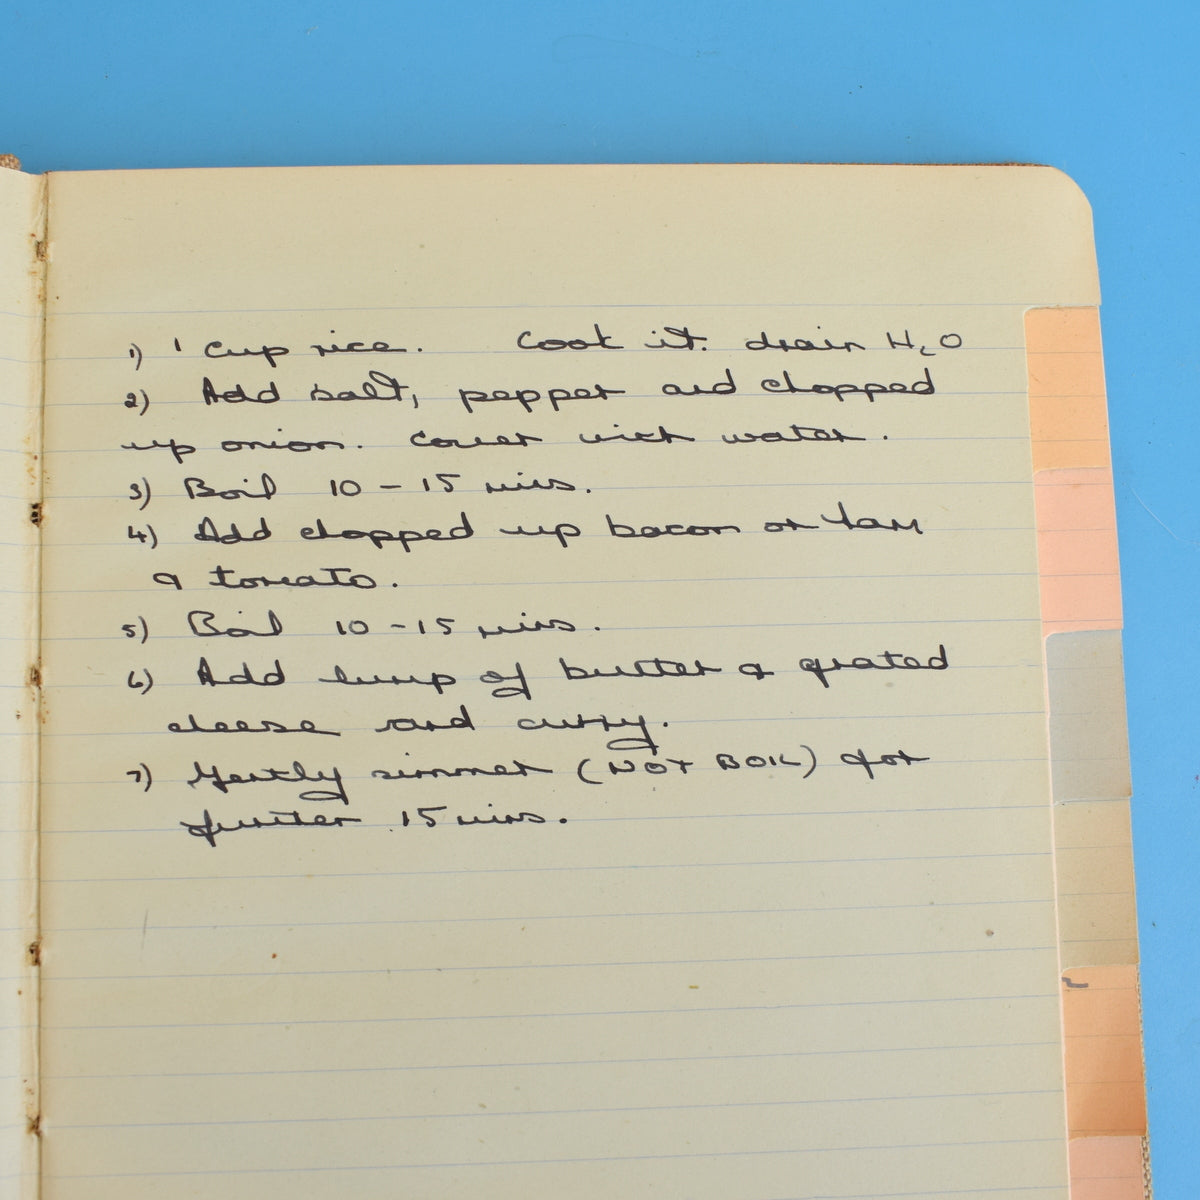 1) 1 cup rice. Cook it. drain H₂O
2) Add salt, pepper and chopped
up onion. Cover with water.
3) Boil 10 - 15 mins.
4) Add chopped up bacon or ham
& tomato.
5) Boil 10 - 15 mins.
6) Add lump of butter & grated
cheese and curry.
7) Gently simmer (NOT BOIL) for
further 15 mins.